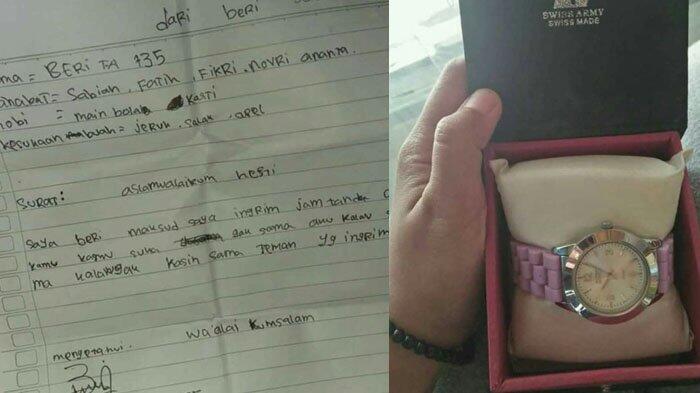 dari beri
ma = BERi TA 135
anabat = Sabian, Fatih, Fikri, Novri ananta.
hobi = main bola Kasti
kesukaan buah = jeruk, salak, apel
SURAT: aslamwalaikum hesti
saya beri maksud saya ingrim jam tanda
kamu kalau suka gak sama aku kalau
ma kalau gak kasih sama teman yg ingrim
wa'alai kumsalam
mengetahui.
SWISS ARMY
SWISS MADE